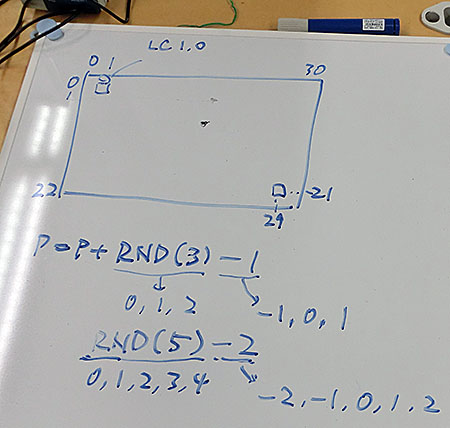 LC1.0
0 1 30
0
1
22 21
29
P=P+RND(3)-1
0,1,2 -1,0,1
RND(5)-2
0,1,2,3,4 -2,-1,0,1,2